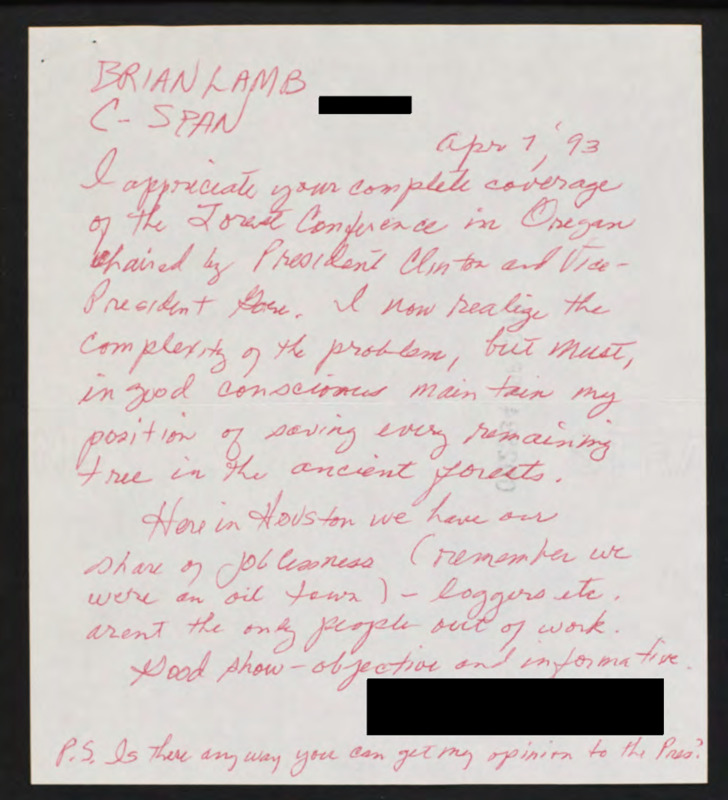 BRIAN LAMB
C-SPAN
Apr 7, '93
I appriciate your complete coverage
of the Forest Conference in Oregan
chaired by President Clinton and Vice-
President Gore. I now realize the
complexity of the problem, but must,
in good conscious maintain my
position of saving every remaining
tree in the ancient forests.
Here in Houston we have our
share of joblessness (remember we
were an oil town) - loggers etc.
arent the only people out of work.
Good show - objective and informative.
P.S. Is there any way you can get my opinion to the Pres?